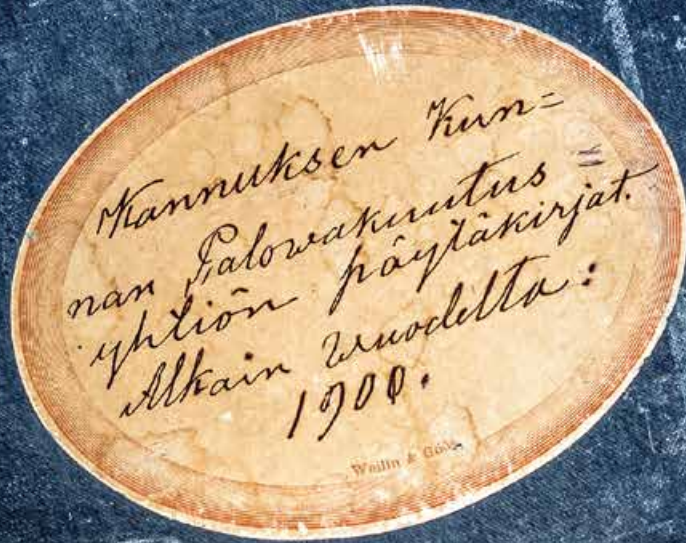 Kannuksen Kun=
nan Palowakuutus =
yhtiön pöytäkirjat.
Alkain wuodelta:
1900.
Weilin & Göös